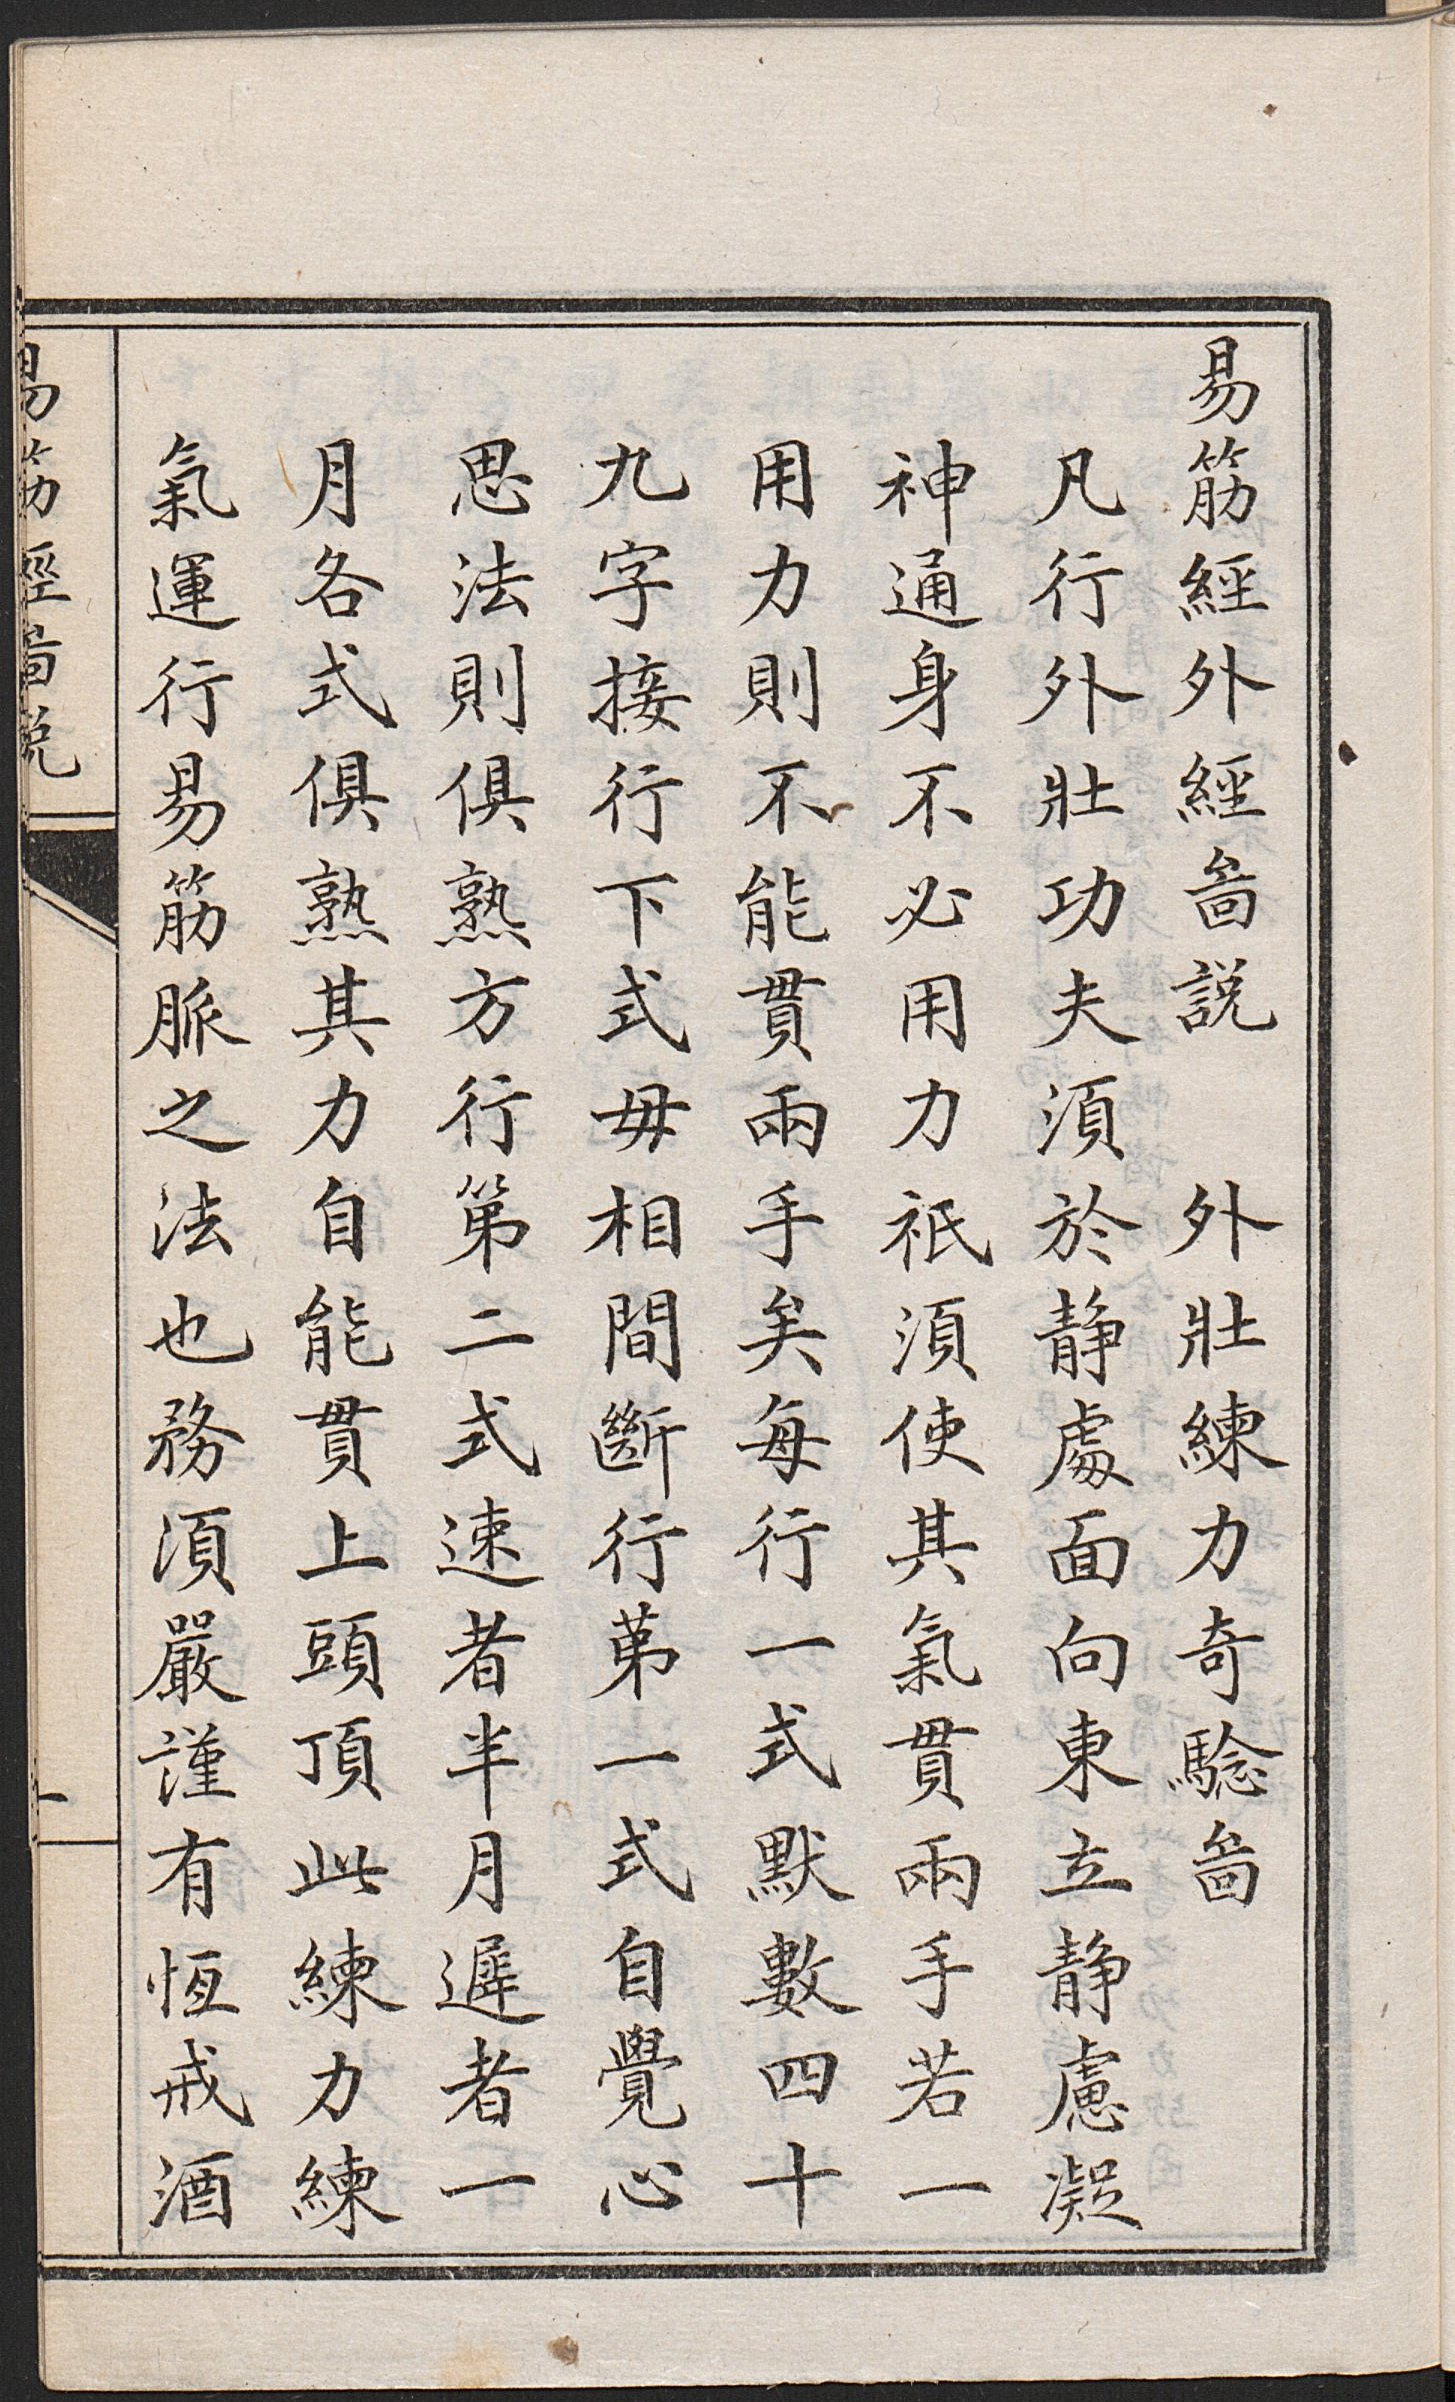 易筋經外經啚説　外壯練力奇騐啚
凡行外壯功夫湏於静處面向東立静慮凝
神通身不必用力祇湏使其氣貫兩手若一
用力則不能貫兩手矣每行一式默數四十
九字接行下式毋相間斷行苐一式自覺心
思法則俱熟方行第二式速者半月遲者一
月各式俱熟其力自能貫上頭頂此練力練
氣運行易筋脈之法也務湏嚴謹有恆戒酒
易筋經啚説
一